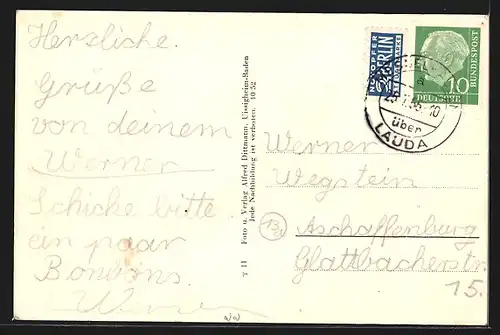 Herzliche.
Grüße
von deinem
Werner
Schicke bitte.
ein paar
Bonbons.
T 11 Foto u. Verlag Alfred Dittmann, Uissigheim-Baden
Jede Nachbildung ist verboten. 10 52
NOTOPFER
2 BERLIN
STEUERMARKE
10
DEUTSCHE
BUNDESPOST
über
LAUDA
Werner
Wegstein
13a
Aschaffenburg
Glattbacherstr.
15.